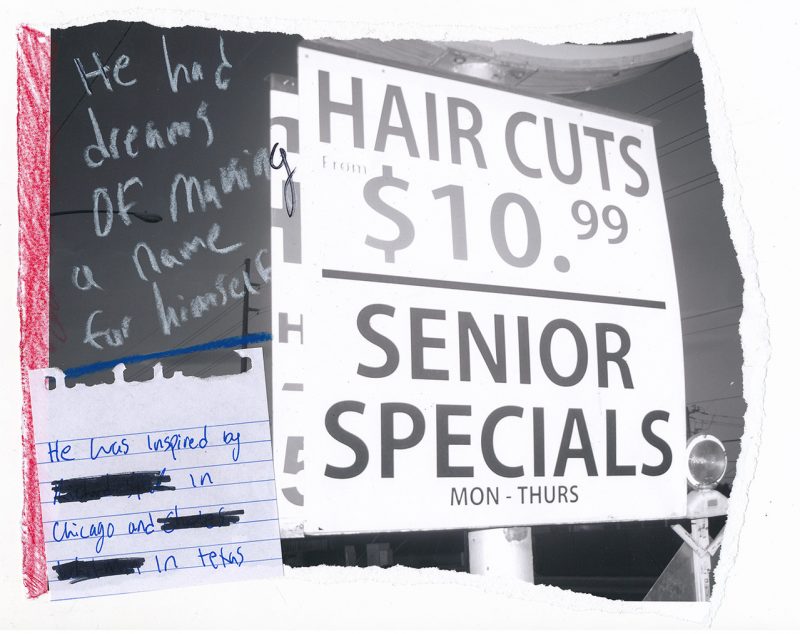 He had
dreams
OF Making
a name
for himself
HAIR CUTS
From
$10.99
SENIOR
SPECIALS
MON - THURS
H
5
He was inspired by
in
Chicago and
in texas